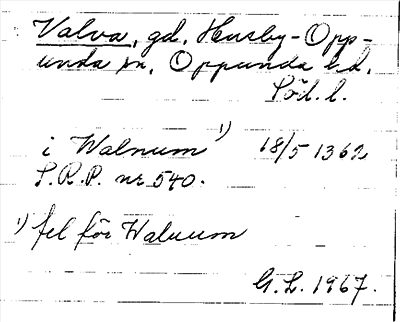 Valva, gd, Husby-Opp-
unda sn, Oppunda hd,
Söd. l.
i Walnum 1) 18/5 1362
S.R.P. nr 540.
1) fel för Waluum
G.L. 1967.